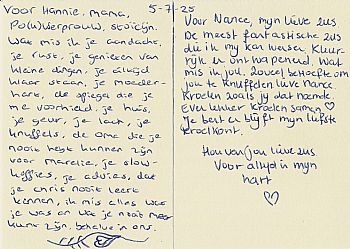 Voor Hannie, mama,
Po(w)verprouw, stoïcijn.
Wat mis ik je aandacht,
je rust, je genieten van
kleine dingen, je altijd
klaar staan, je moeder-
hart, de spiegel die je
me voorhield, je huis,
je geur, je lach, je
knuffels, de oma die je
nooit hebt kunnen zijn
voor Marelie, je slow-
koffies, je advies, dat
je Chris nooit leert
kennen, ik mis alles wat
je was en wat je nooit meer
kunt zijn, behalve in ons.
5-7-25
Voor Nance, mijn lieve zus
De meest fantastische zus
die ik my kan wensen. Kleur-
rijk en ontwapenend. Wat
mis ik jou. Zoveel behoefte om
jou te knuffelen lieve Nance.
Kroelen zoals jij dat noemde.
Even lekker kroelen samen ♡
Je bent en blijft mijn liefste
kroelkont.
Hou van jou lieve zus
Voor altijd in mijn
hart
♡